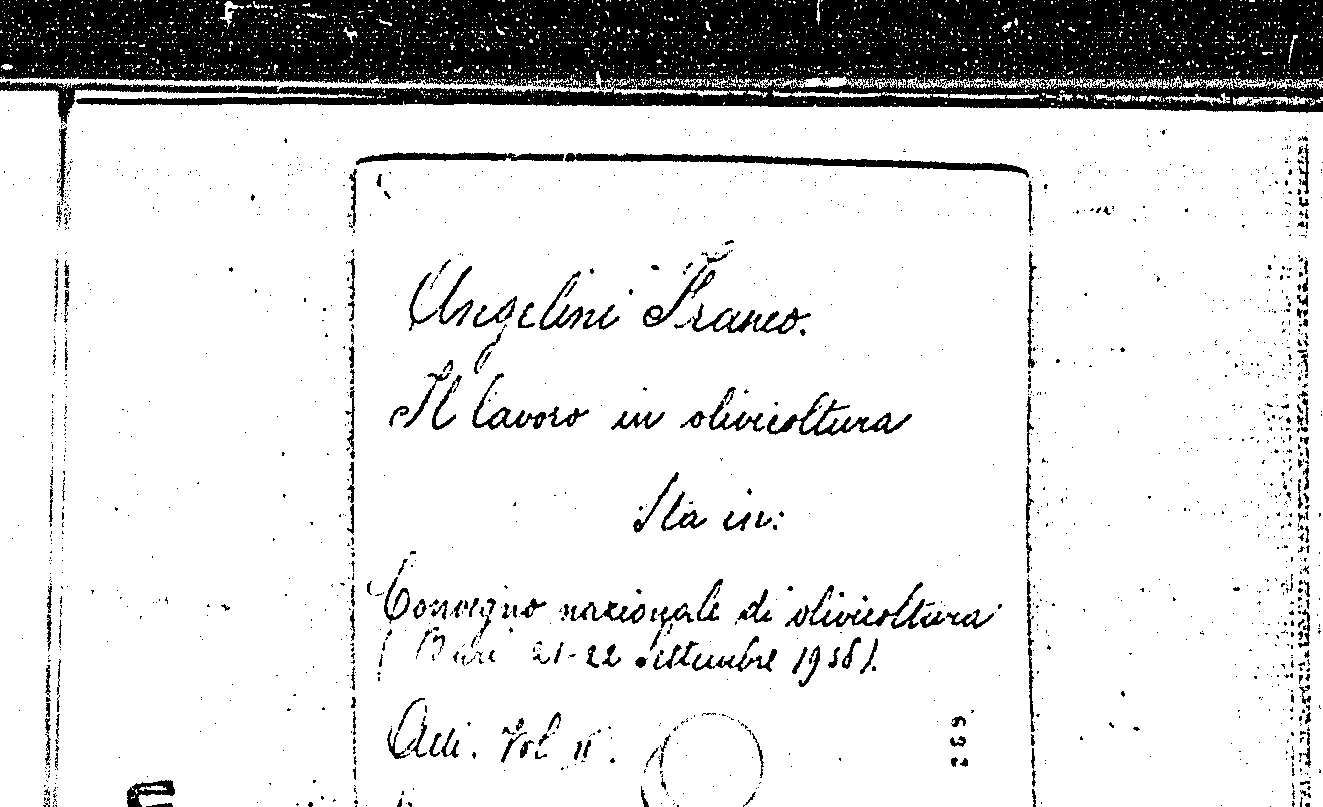 Angelini Franco.
Il lavoro in olivicoltura
Sta in:
Convegno nazionale di olivicoltura
(Bari 21-22 settembre 1956).
Atti. Vol II.